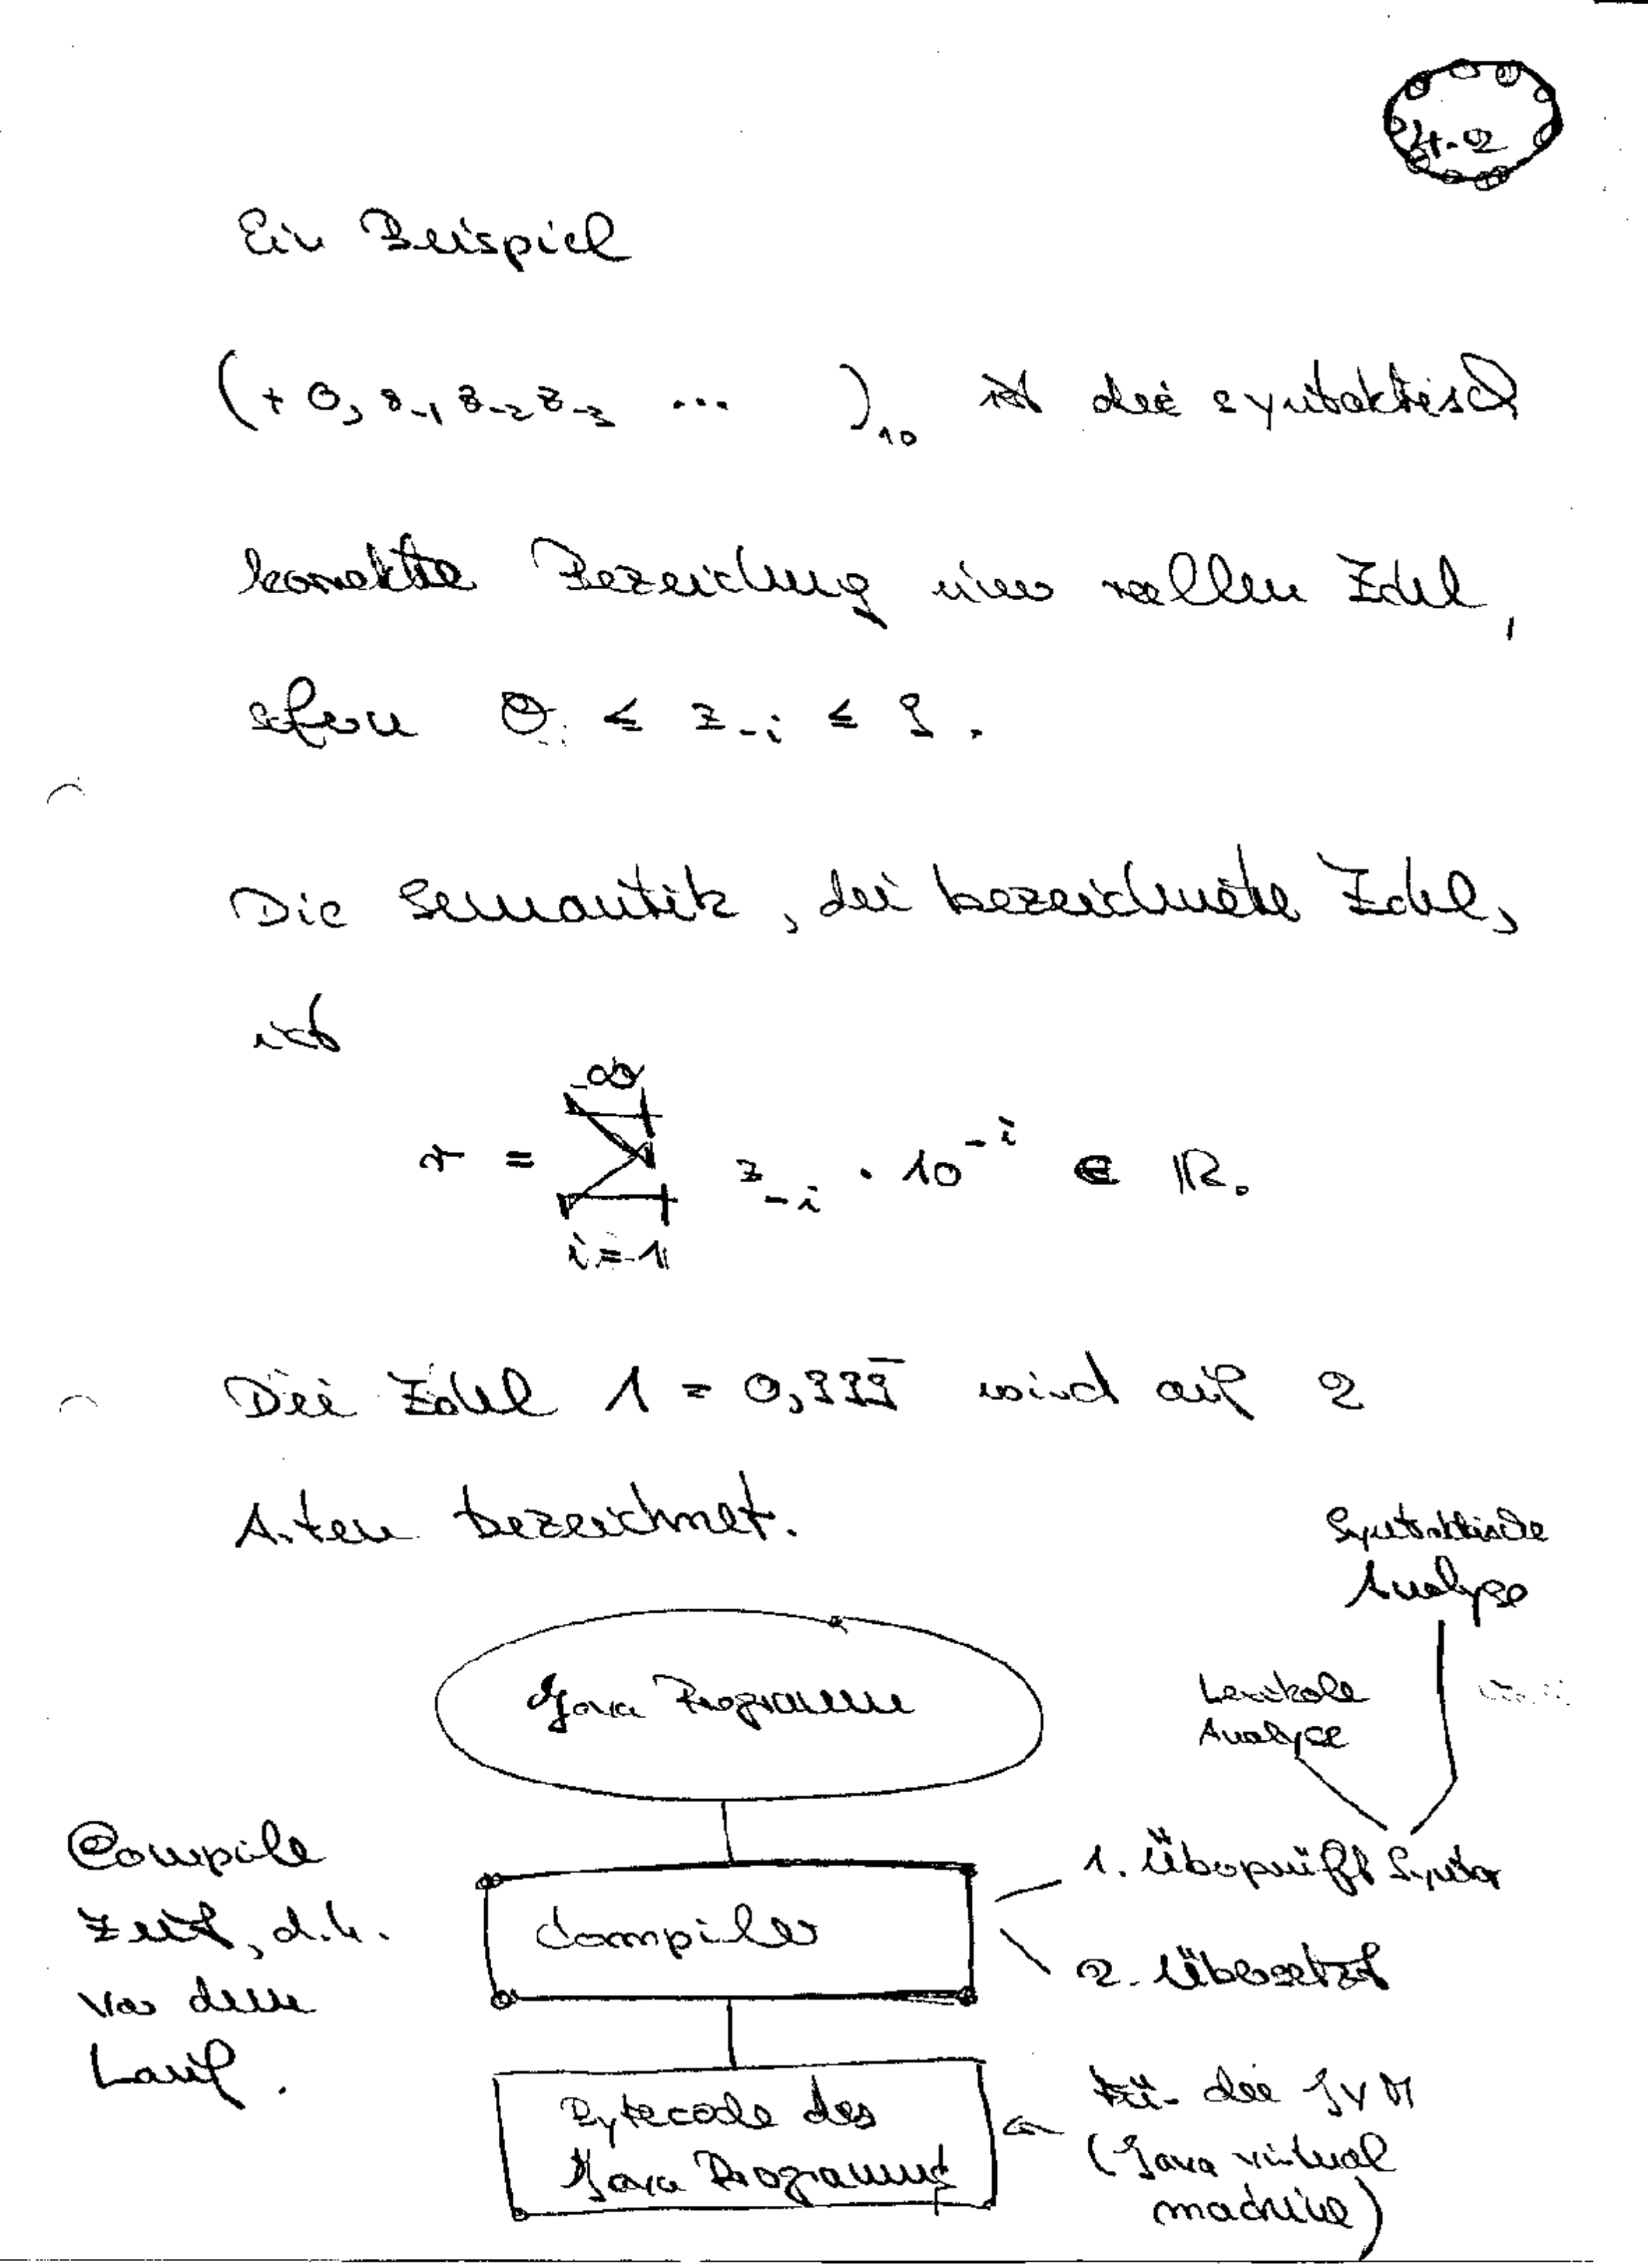 4.2
Ein Beispiel
(+ 0, z₋₁ z₋₂ z₋₃ ... )₁₀ ist die syntaktisch
korrekte Bezeichung einer reellen Zahl,
sofern 0 ≤ z₋ᵢ ≤ 9.
Die Semantik, die bezeichnete Zahl,
ist
∞
r = ∑ z₋ᵢ · 10⁻ⁱ ∈ ℝ.
i=1
Die Zahl 1 = 0,999̅ wird auf 2
Arten bezeichnet.
Syntaktische
Analyse
Java Programm
Lexikale
Analyse
Compile
Zeit, d.h.
vor dem
Lauf.
Compiler
1. Überprüft Syntax
2. Übersetzt
Bytecode des
Java Programms
Für die JVM
(Java virtual
machine)